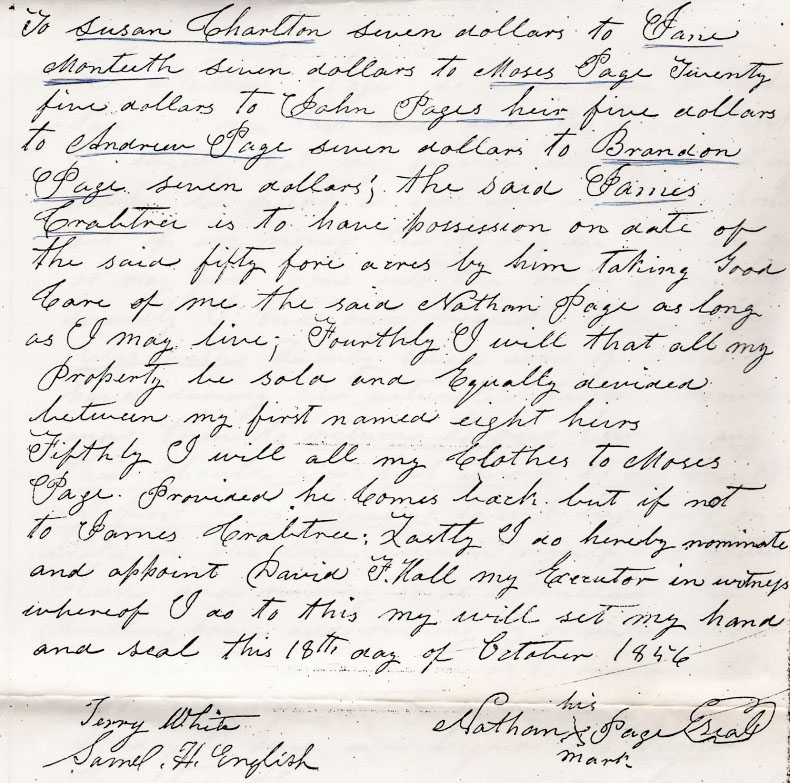 To Susan Charlton seven dollars to Jane
Monteeth seven dollars to Moses Page Twenty
five dollars to John Pages heir five dollars
to Andrew Page seven dollars to Brandon
Page seven dollars; the said James
Crabtree is to have possession on date of
the said fifty fore acres by him taking Good
Care of me the said Nathan Page as long
as I may live; Fourthly I will that all my
Property be sold and Equally devided
between my first named eight heirs
Fifthly I will all my Clothes to Moses
Page. Provided he Comes back but if not
to James Crabtree; Lastly I do hereby nominate
and appoint David F. Hall my Executor in witness
whereof I do to this my will set my hand
and seal this 18th day of October 1856
his
Terry White Nathan X Page Seal
Samel. H. English mark